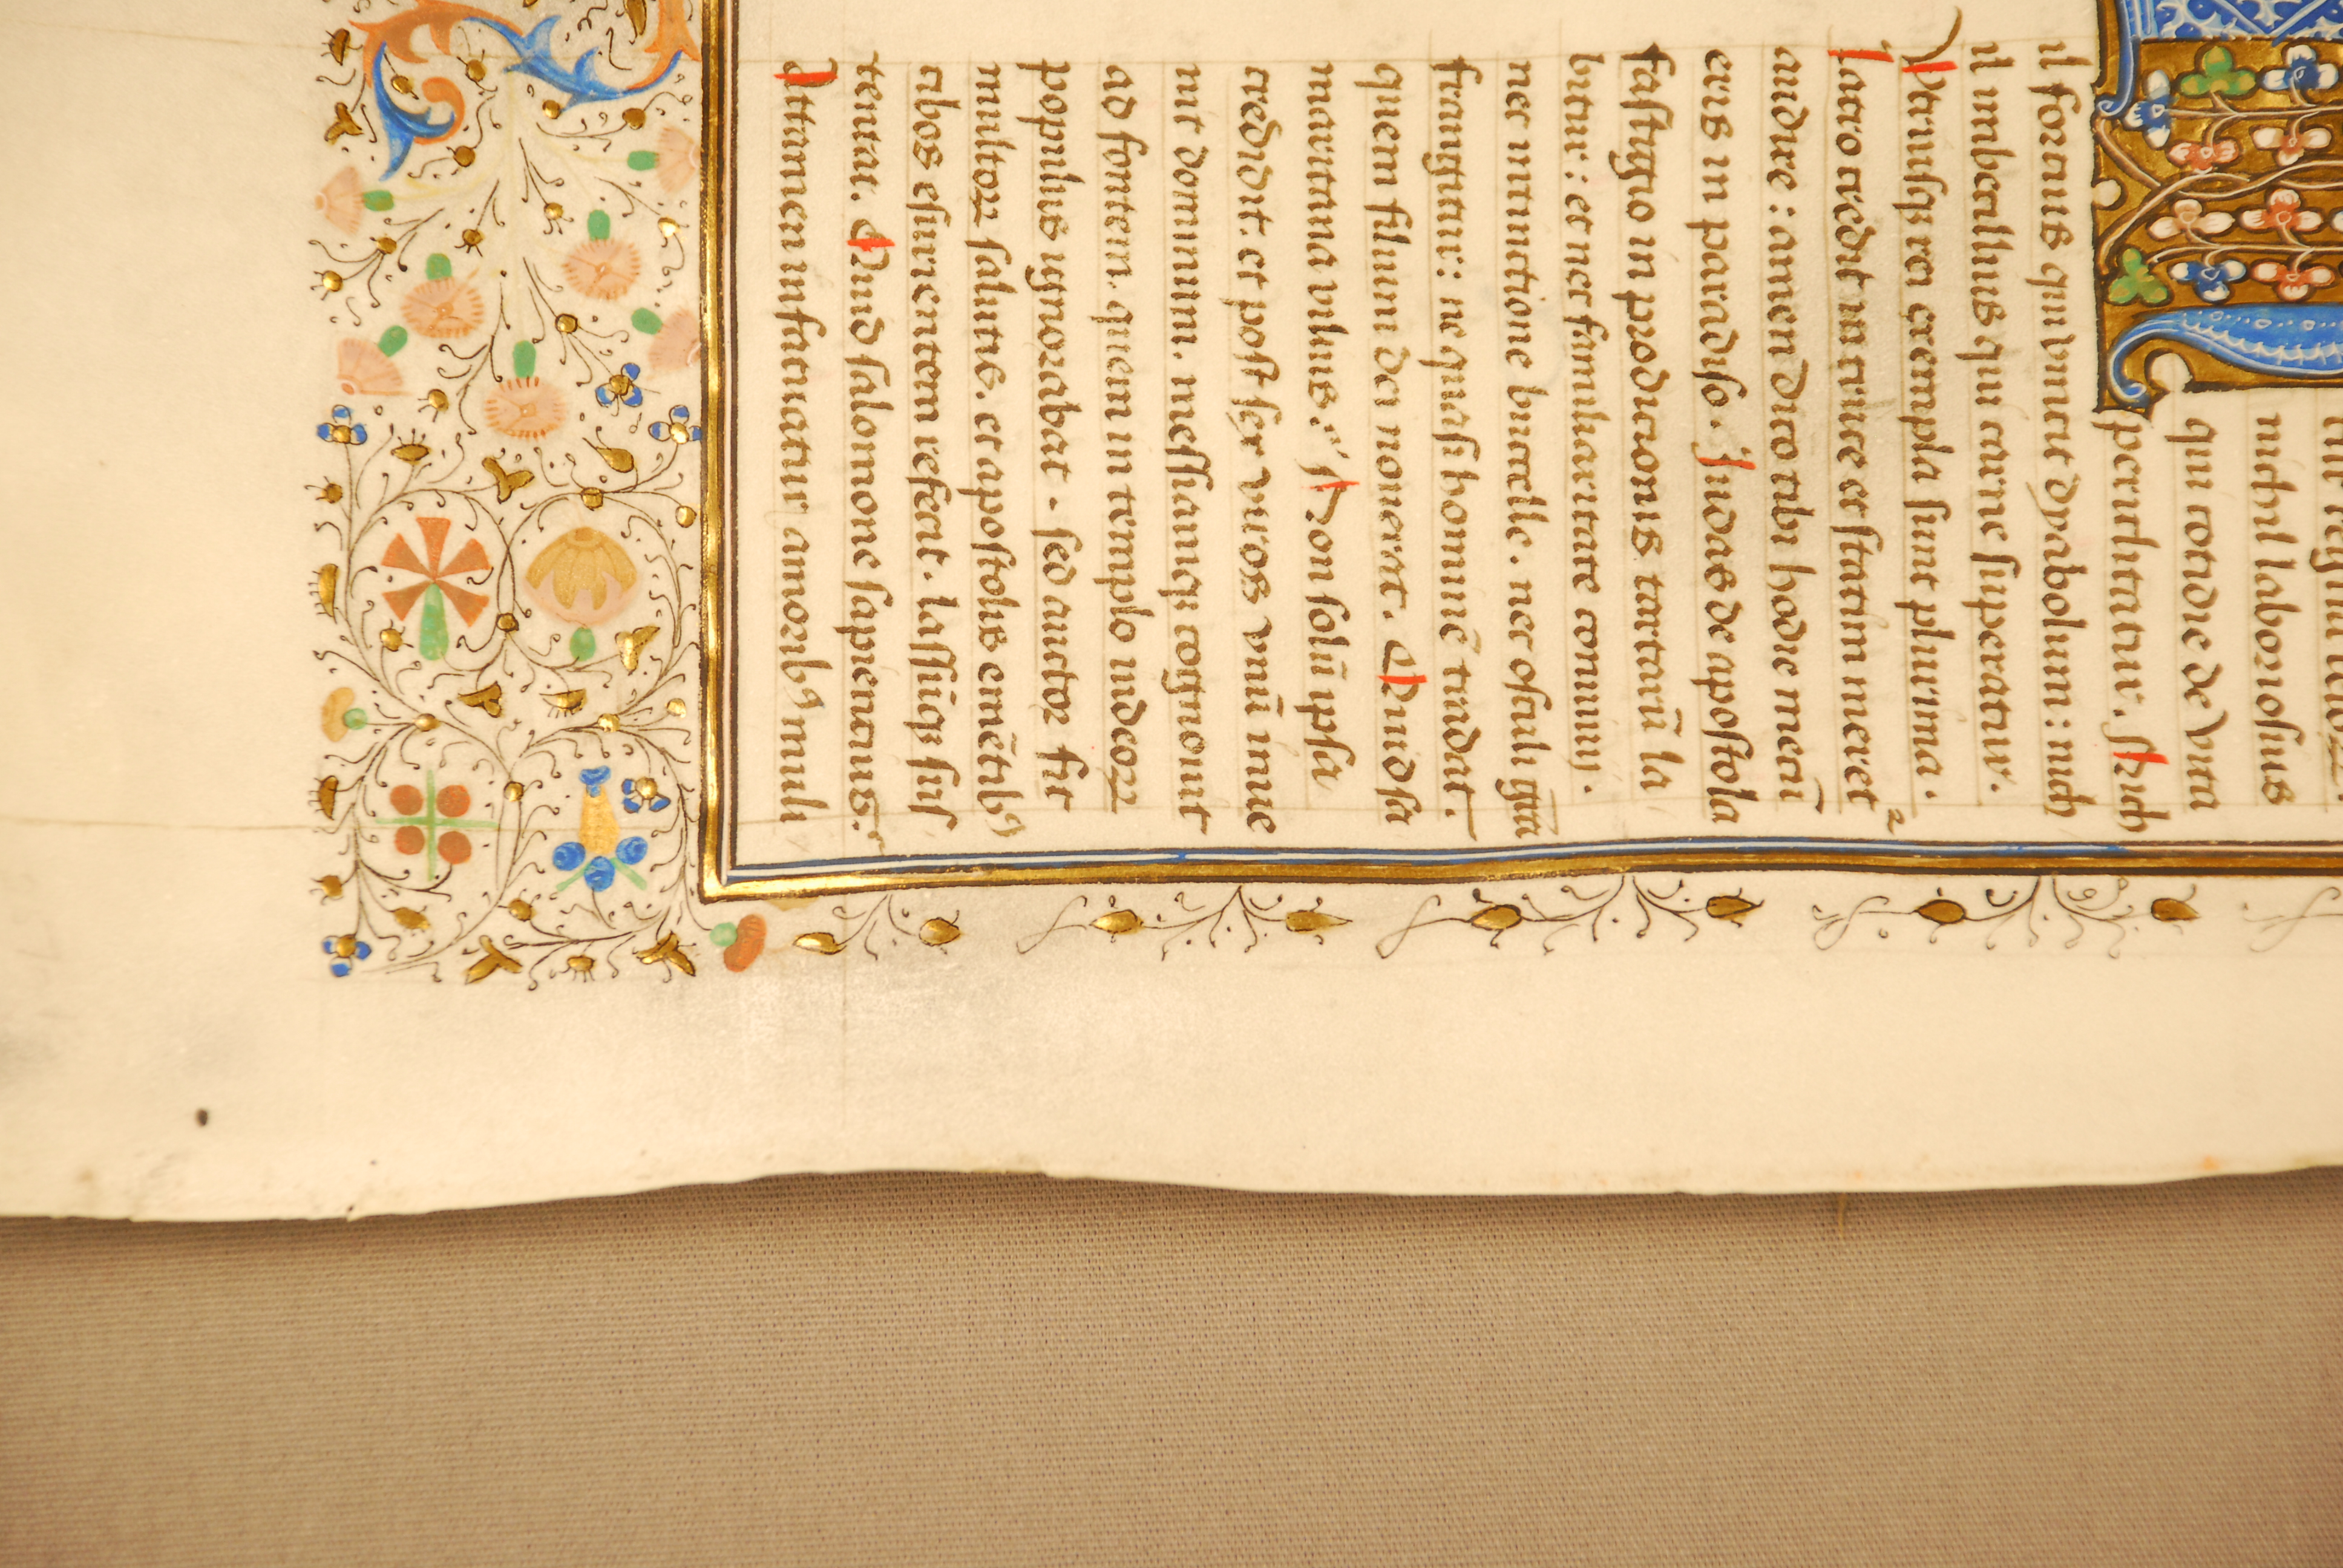 nichil laboriosius
qui cotidie de vita
periclitatur. Nich
il fortius qui vincit dyabolum: nich
il imbecillius qui carne superatur.
Utriusqꝫ rei exempla sunt plurima.
Latro credit in cruce et statim meret²
audire: amen dico tibi hodie mecū
eris in paradiso. Judas de apostola
fastigio in prodicionis tartarū la
bitur: et nec familiaritate conuiuij.
nec intinctione buccelle. nec osculi gr̄a
frangitur: ne quasi hominē tradat.
quem filium dei nouerat. Quid sa
maritana vilius. Non solū ipsa
credidit. et post sex viros vnū inue
nit dominum. messiamqꝫ cognouit
ad fontem. quem in templo iudeoꝝ
populus ignorabat. sed auctor fit
multoꝝ salutis. et apostolis emētibꝰ
cibos esurientem refecit. lassūqꝫ sus
tentat. Quid salomone sapientius.
Attamen infatuatur amoribꝰ muli